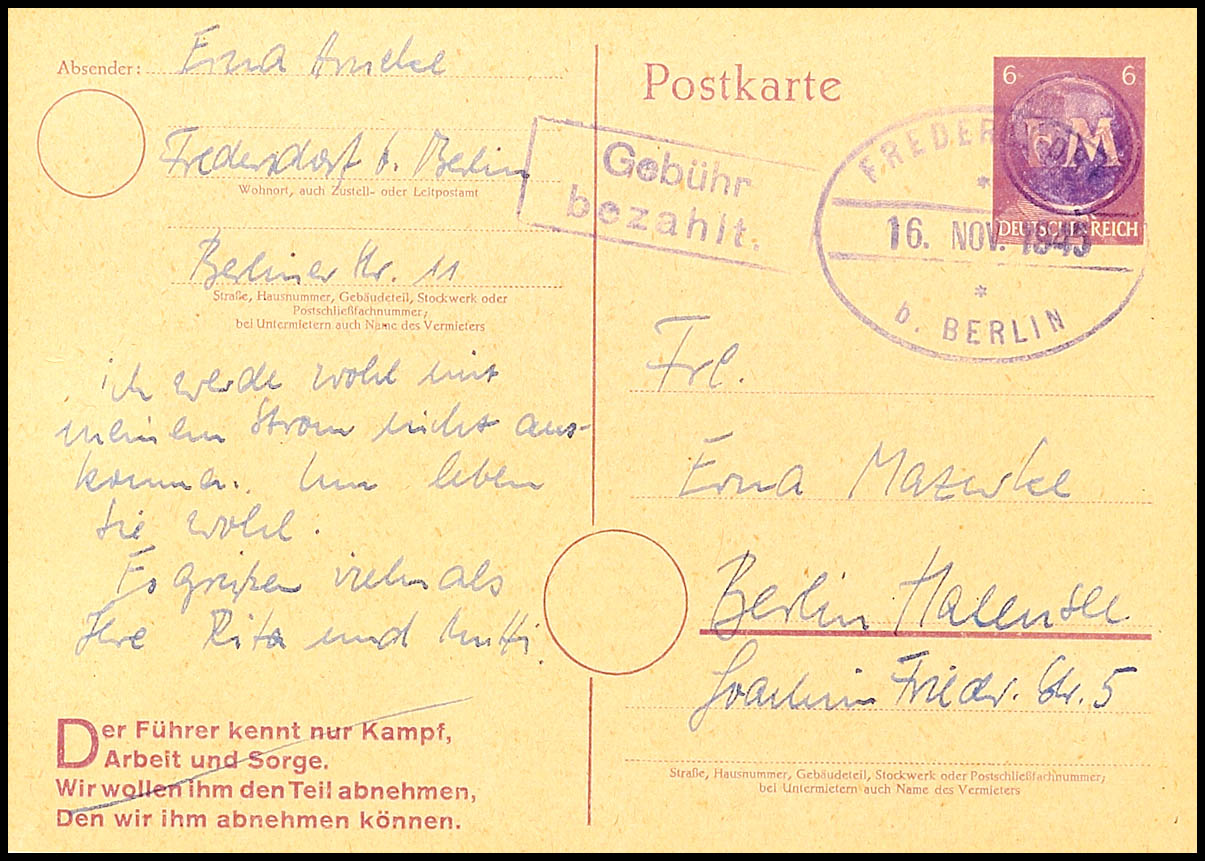 Absender: Erna
Fredersdorf b. Berlin
Wohnort, auch Zustell- oder Leitpostamt
Berliner Str. 11
Straße, Hausnummer, Gebäudeteil, Stockwerk oder
Postschließfachnummer;
bei Untermietern auch Name des Vermieters
ich werde wohl mit
meinem Strom nicht aus-
kommen. Nun leben
Sie wohl.
Es grüßen vielmals
Ihre Rita und Mutti.
Der Führer kennt nur Kampf,
Arbeit und Sorge.
Wir wollen ihm den Teil abnehmen,
Den wir ihm abnehmen können.
Postkarte
6 6
DEUTSCHES REICH
Gebühr
bezahlt.
FREDERSDORF
16. NOV. 1945
b. BERLIN
Frl.
Erna
Berlin Halensee
Joachim Friedr. Str. 5
Straße, Hausnummer, Gebäudeteil, Stockwerk oder Postschließfachnummer;
bei Untermietern auch Name des Vermieters